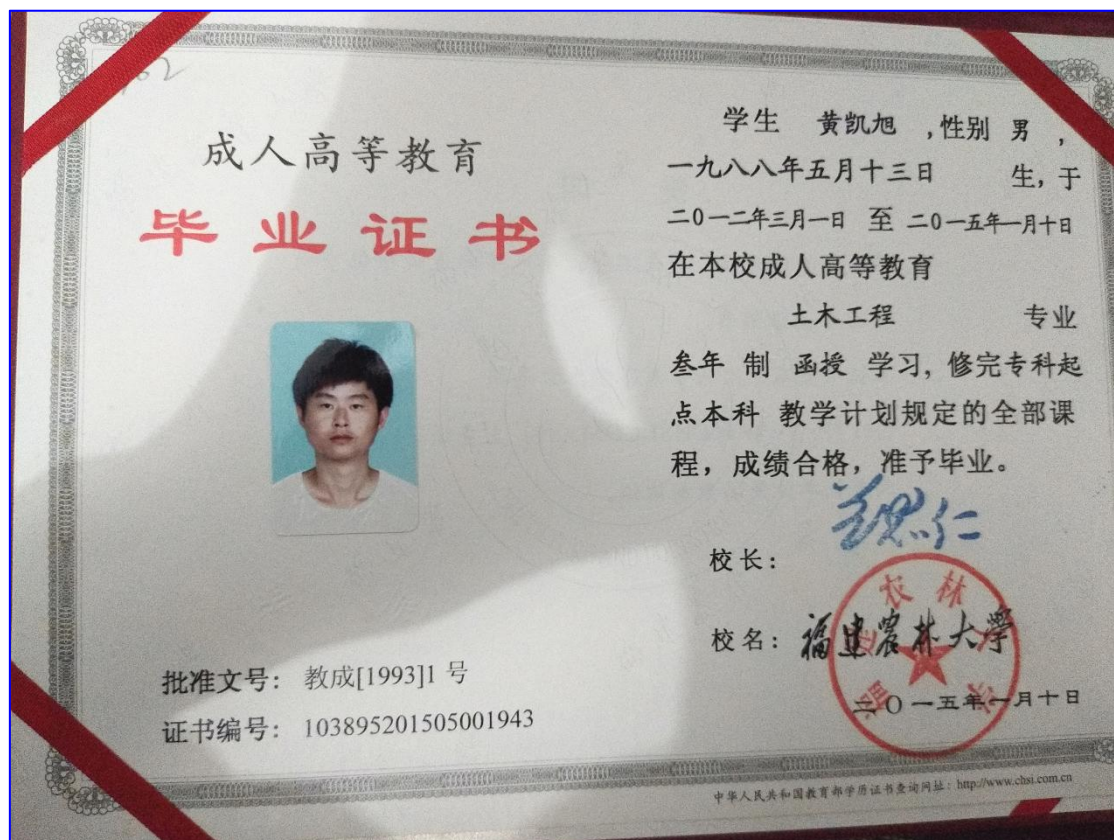 成人高等教育
毕业证书
批准文号： 教成[1993]1 号
证书编号： 103895201505001943
学生 黄凯旭 ，性别 男 ，
一九八八年五月十三日 生，于
二0一二年三月一日 至 二0一五年一月十日
在本校成人高等教育
土木工程 专业
叁年 制 函授 学习，修完专科起
点本科 教学计划规定的全部课
程，成绩合格，准予毕业。
校长：
校名：福建农林大學
二0一五年一月十日
中华人民共和国教育部学历证书查询网址：http://www.chsi.com.cn